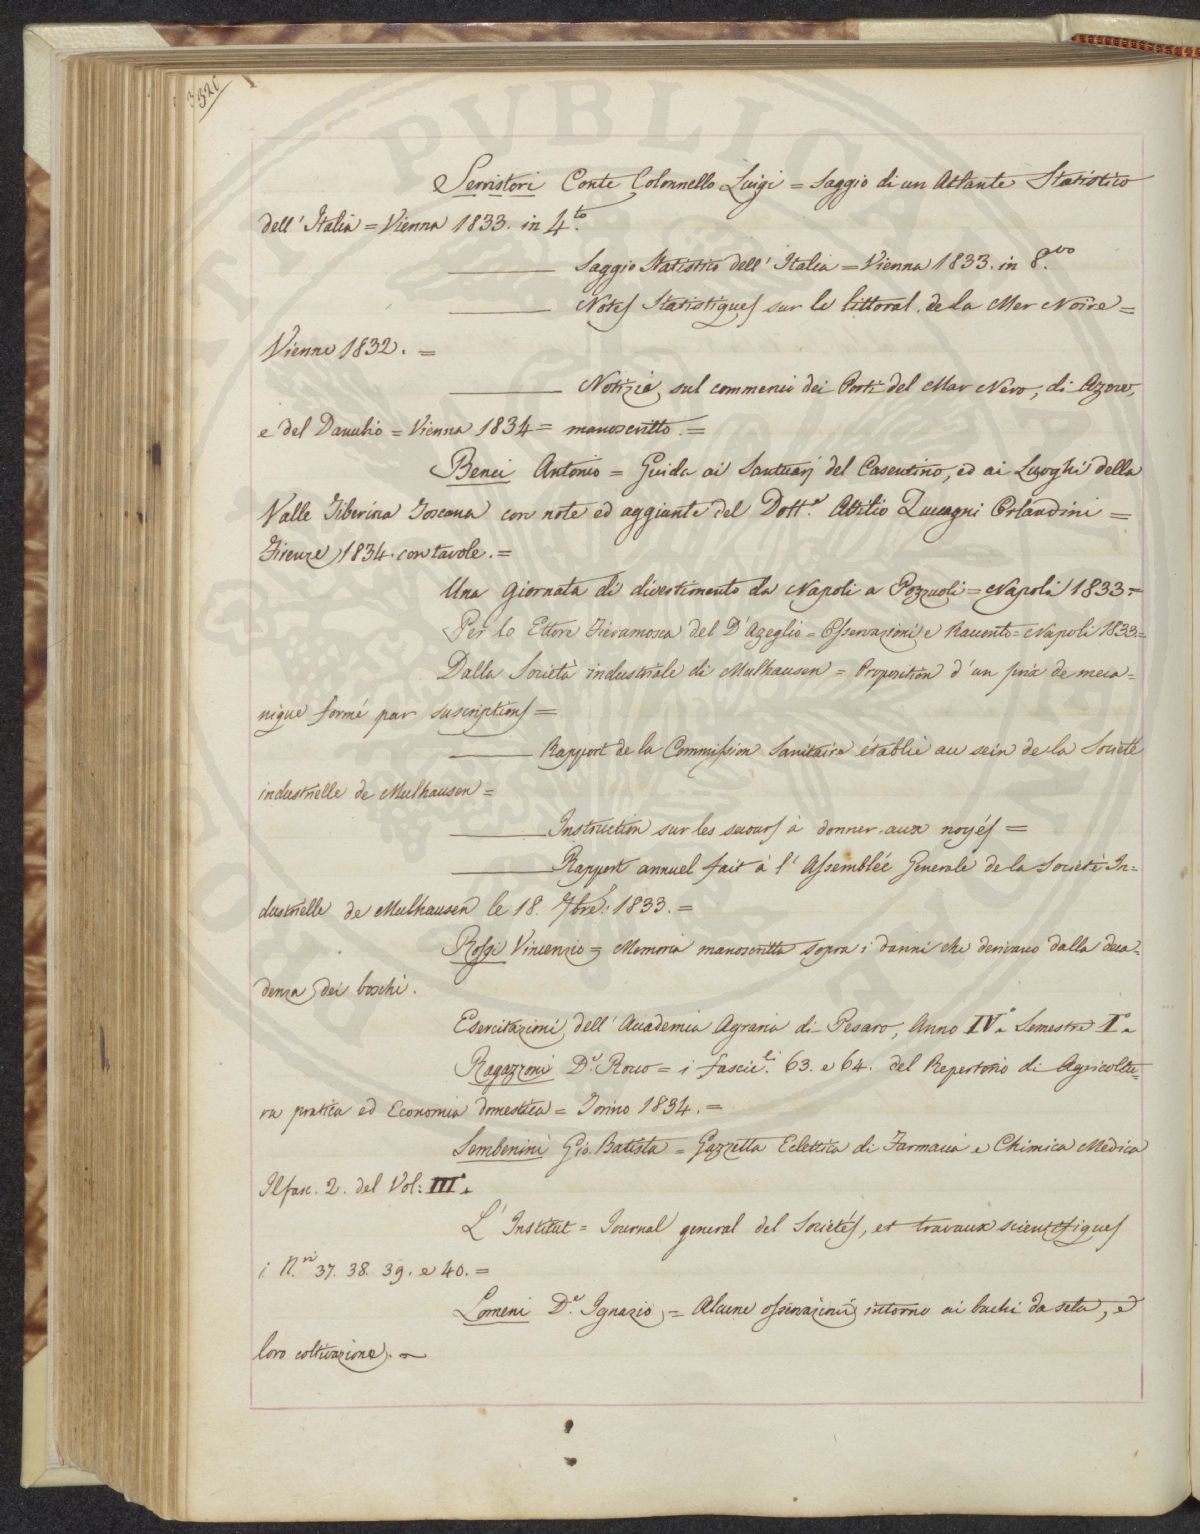 326
Serristori Conte Colonnello Luigi = Saggio di un Atlante Statistico
dell' Italia = Vienna 1833. in 4.to
——— Saggio Statistico dell' Italia = Vienna 1833. in 8.vo
——— Notes Statistiques sur le littoral de la Mer Noire =
Vienne 1832. =
——— Notizie sul commercio dei Porti del Mar Nero, di Azow,
e del Danubio = Vienna 1834 = manoscritto. =
Benci Antonio = Guida ai Santuarj del Casentino, ed ai Luoghi della
Valle Tiberina Toscana con note ed aggiunte del Dott.e Attilio Zuccagni Orlandini =
Firenze 1834. con tavole. =
Una giornata di divertimento da Napoli a Pozzuoli = Napoli 1833 =
Per lo Ettore Fieramosca del D'Azeglio = Osservazioni e Racconto = Napoli 1833 =
Dalla Società industriale di Mulhausen = Proposition d'un prix de meca=
nique formé par suscriptions =
——— Rapport de la Commission Sanitaire établie au sein de la Societé
industrielle de Mulhausen =
——— Instruction sur les secours à donner aux noyés =
——— Rapport annuel fait à l'Assemblée Generale de la Societé In=
dustrielle de Mulhausen le 18. 7bre: 1833. =
Rossi Vincenzio = Memoria manoscritta sopra i danni che derivano dalla deca=
denza dei boschi.
Esercitazioni dell' Accademia Agraria di Pesaro, Anno IV.° Semestre I.°
Ragazzoni D.e Rocco = i fascic.li 63. e 64. del Repertorio di Agricoltu=
ra pratica ed Economia domestica = Torino 1834. =
Sembenini Gio. Batista = Gazzetta Eclettica di Farmacia e Chimica Medica
Il fasc. 2. del Vol: III.°
L' Institut = Journal general del Societés, et travaux scientifiques
i N.ri 37. 38. 39. e 40. =
Lomeni D.e Ignazio = Alcune osservazioni intorno ai bachi da seta, e
loro coltivazione. =
PUBLICA